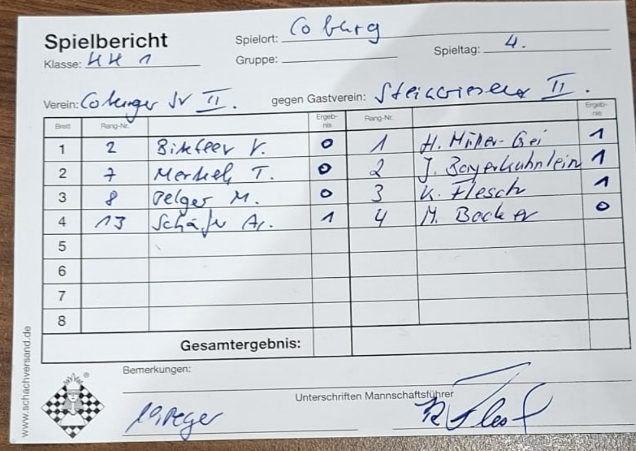 Spielbericht
Spielort: Coburg
Klasse: KK 1 Gruppe: Spieltag: 4.
Verein: Coburger SV II. gegen Gastverein: Steinwiesen II.
Brett Rang-Nr. Ergeb-nis Rang-Nr. Ergeb-nis
1 2 V. 0 1 H. Müller-Gei 1
2 7 Merkel T. 0 2 J. Bayerkuhnlein 1
3 8 Pelger M. 0 3 K. Flesch 1
4 13 Schäfer 1 4 M. Backer 0
5
6
7
8
Gesamtergebnis:
Bemerkungen:
Unterschriften Mannschaftsführer
www.schachversand.de